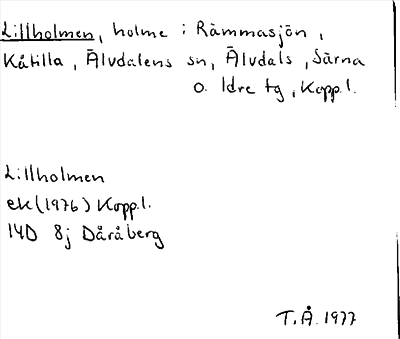 Lillholmen, holme i Rämmasjön,
Kåtilla, Älvdalens sn, Älvdals, Särna
o. Idre tg, Kopp.l.
Lillholmen
ek (1976) Kopp.l.
14D 8j Dåråberg
T.Å. 1977